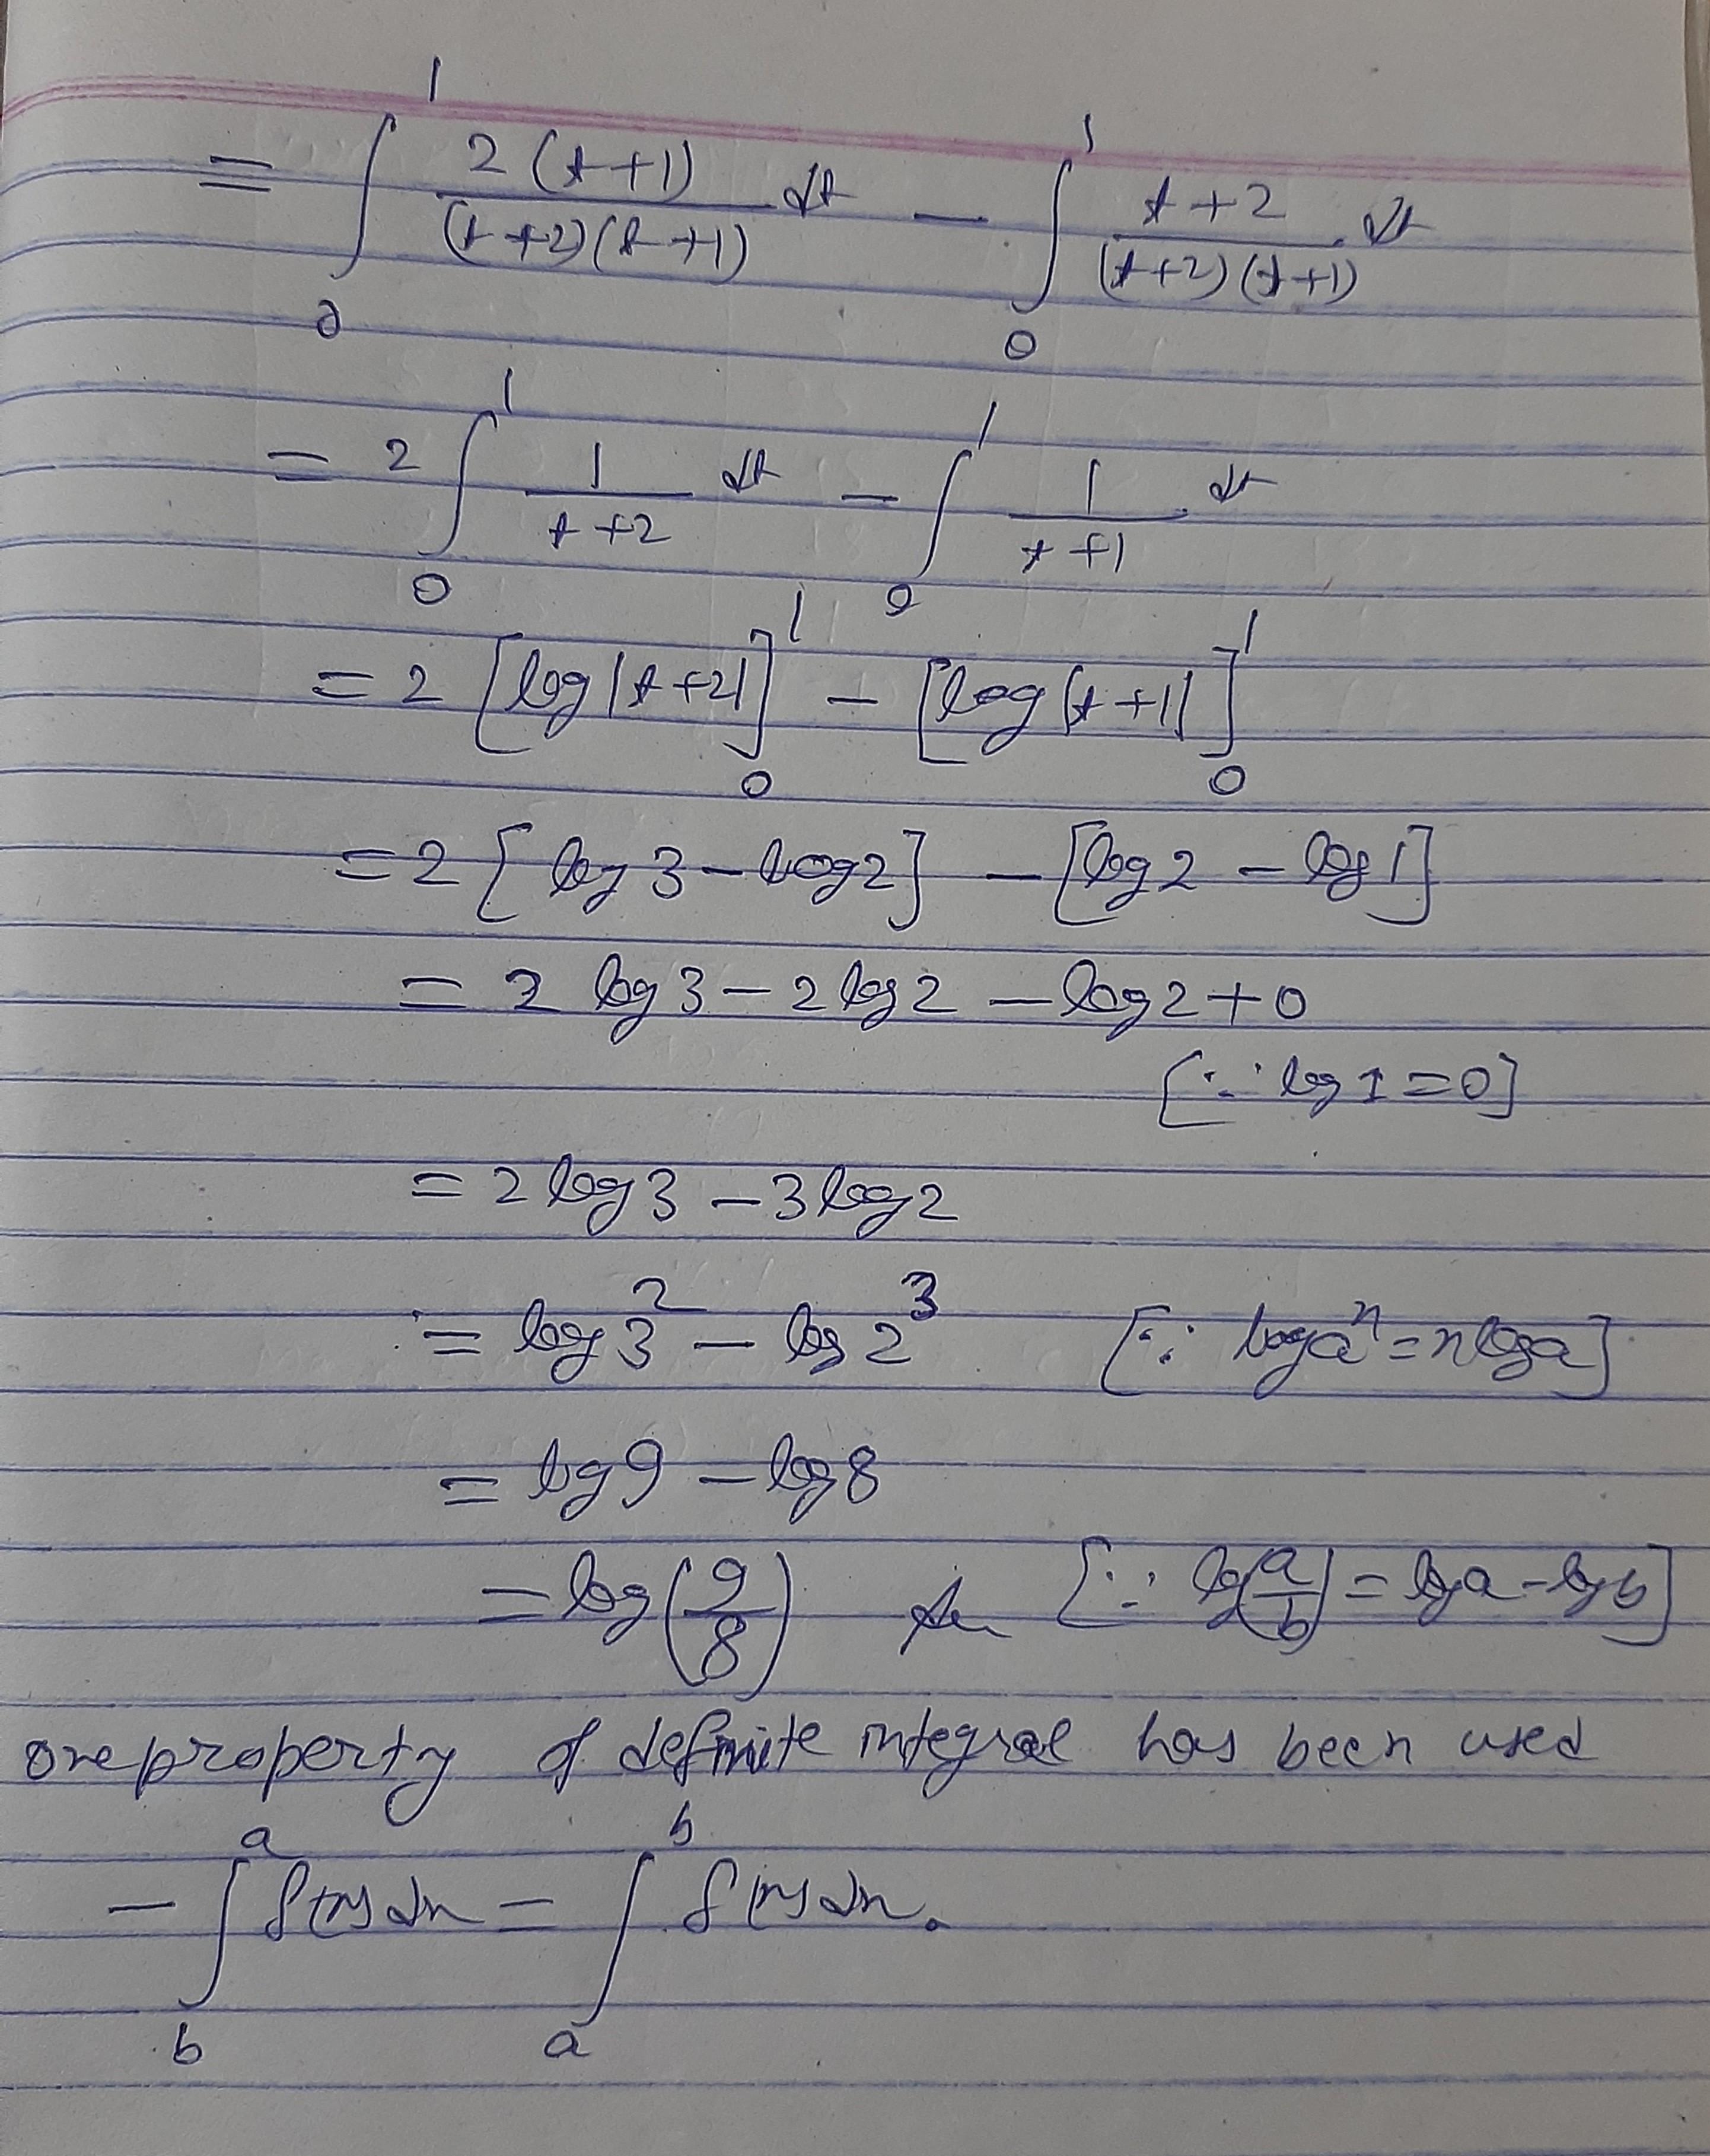 = ∫₀¹ 2(t+1)/((t+2)(t+1)) dt − ∫₀¹ (t+2)/((t+2)(t+1)) dt
= 2 ∫₀¹ 1/(t+2) dt − ∫₀¹ 1/(t+1) dt
= 2 [log|t+2|]₀¹ − [log|t+1|]₀¹
= 2 [log 3 − log 2] − [log 2 − log 1]
= 2 log 3 − 2 log 2 − log 2 + 0
[∵ log 1 = 0]
= 2 log 3 − 3 log 2
= log 3² − log 2³ [∵ log aⁿ = n log a]
= log 9 − log 8
= log (9/8) [∵ log(a/b) = log a − log b]
one property of definite integral has been used
− ∫_b^a f(x) dx = ∫_a^b f(x) dx.